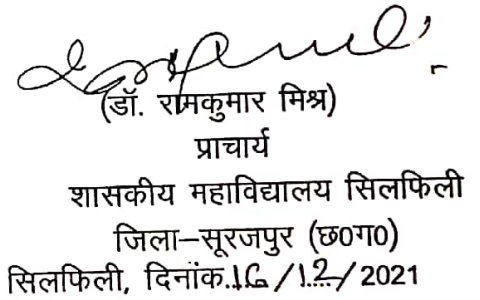 (डॉ. रामकुमार मिश्र)
प्राचार्य
शासकीय महाविद्यालय सिलफिली
जिला–सूरजपुर (छ0ग0)
सिलफिली, दिनांक.16/12/2021